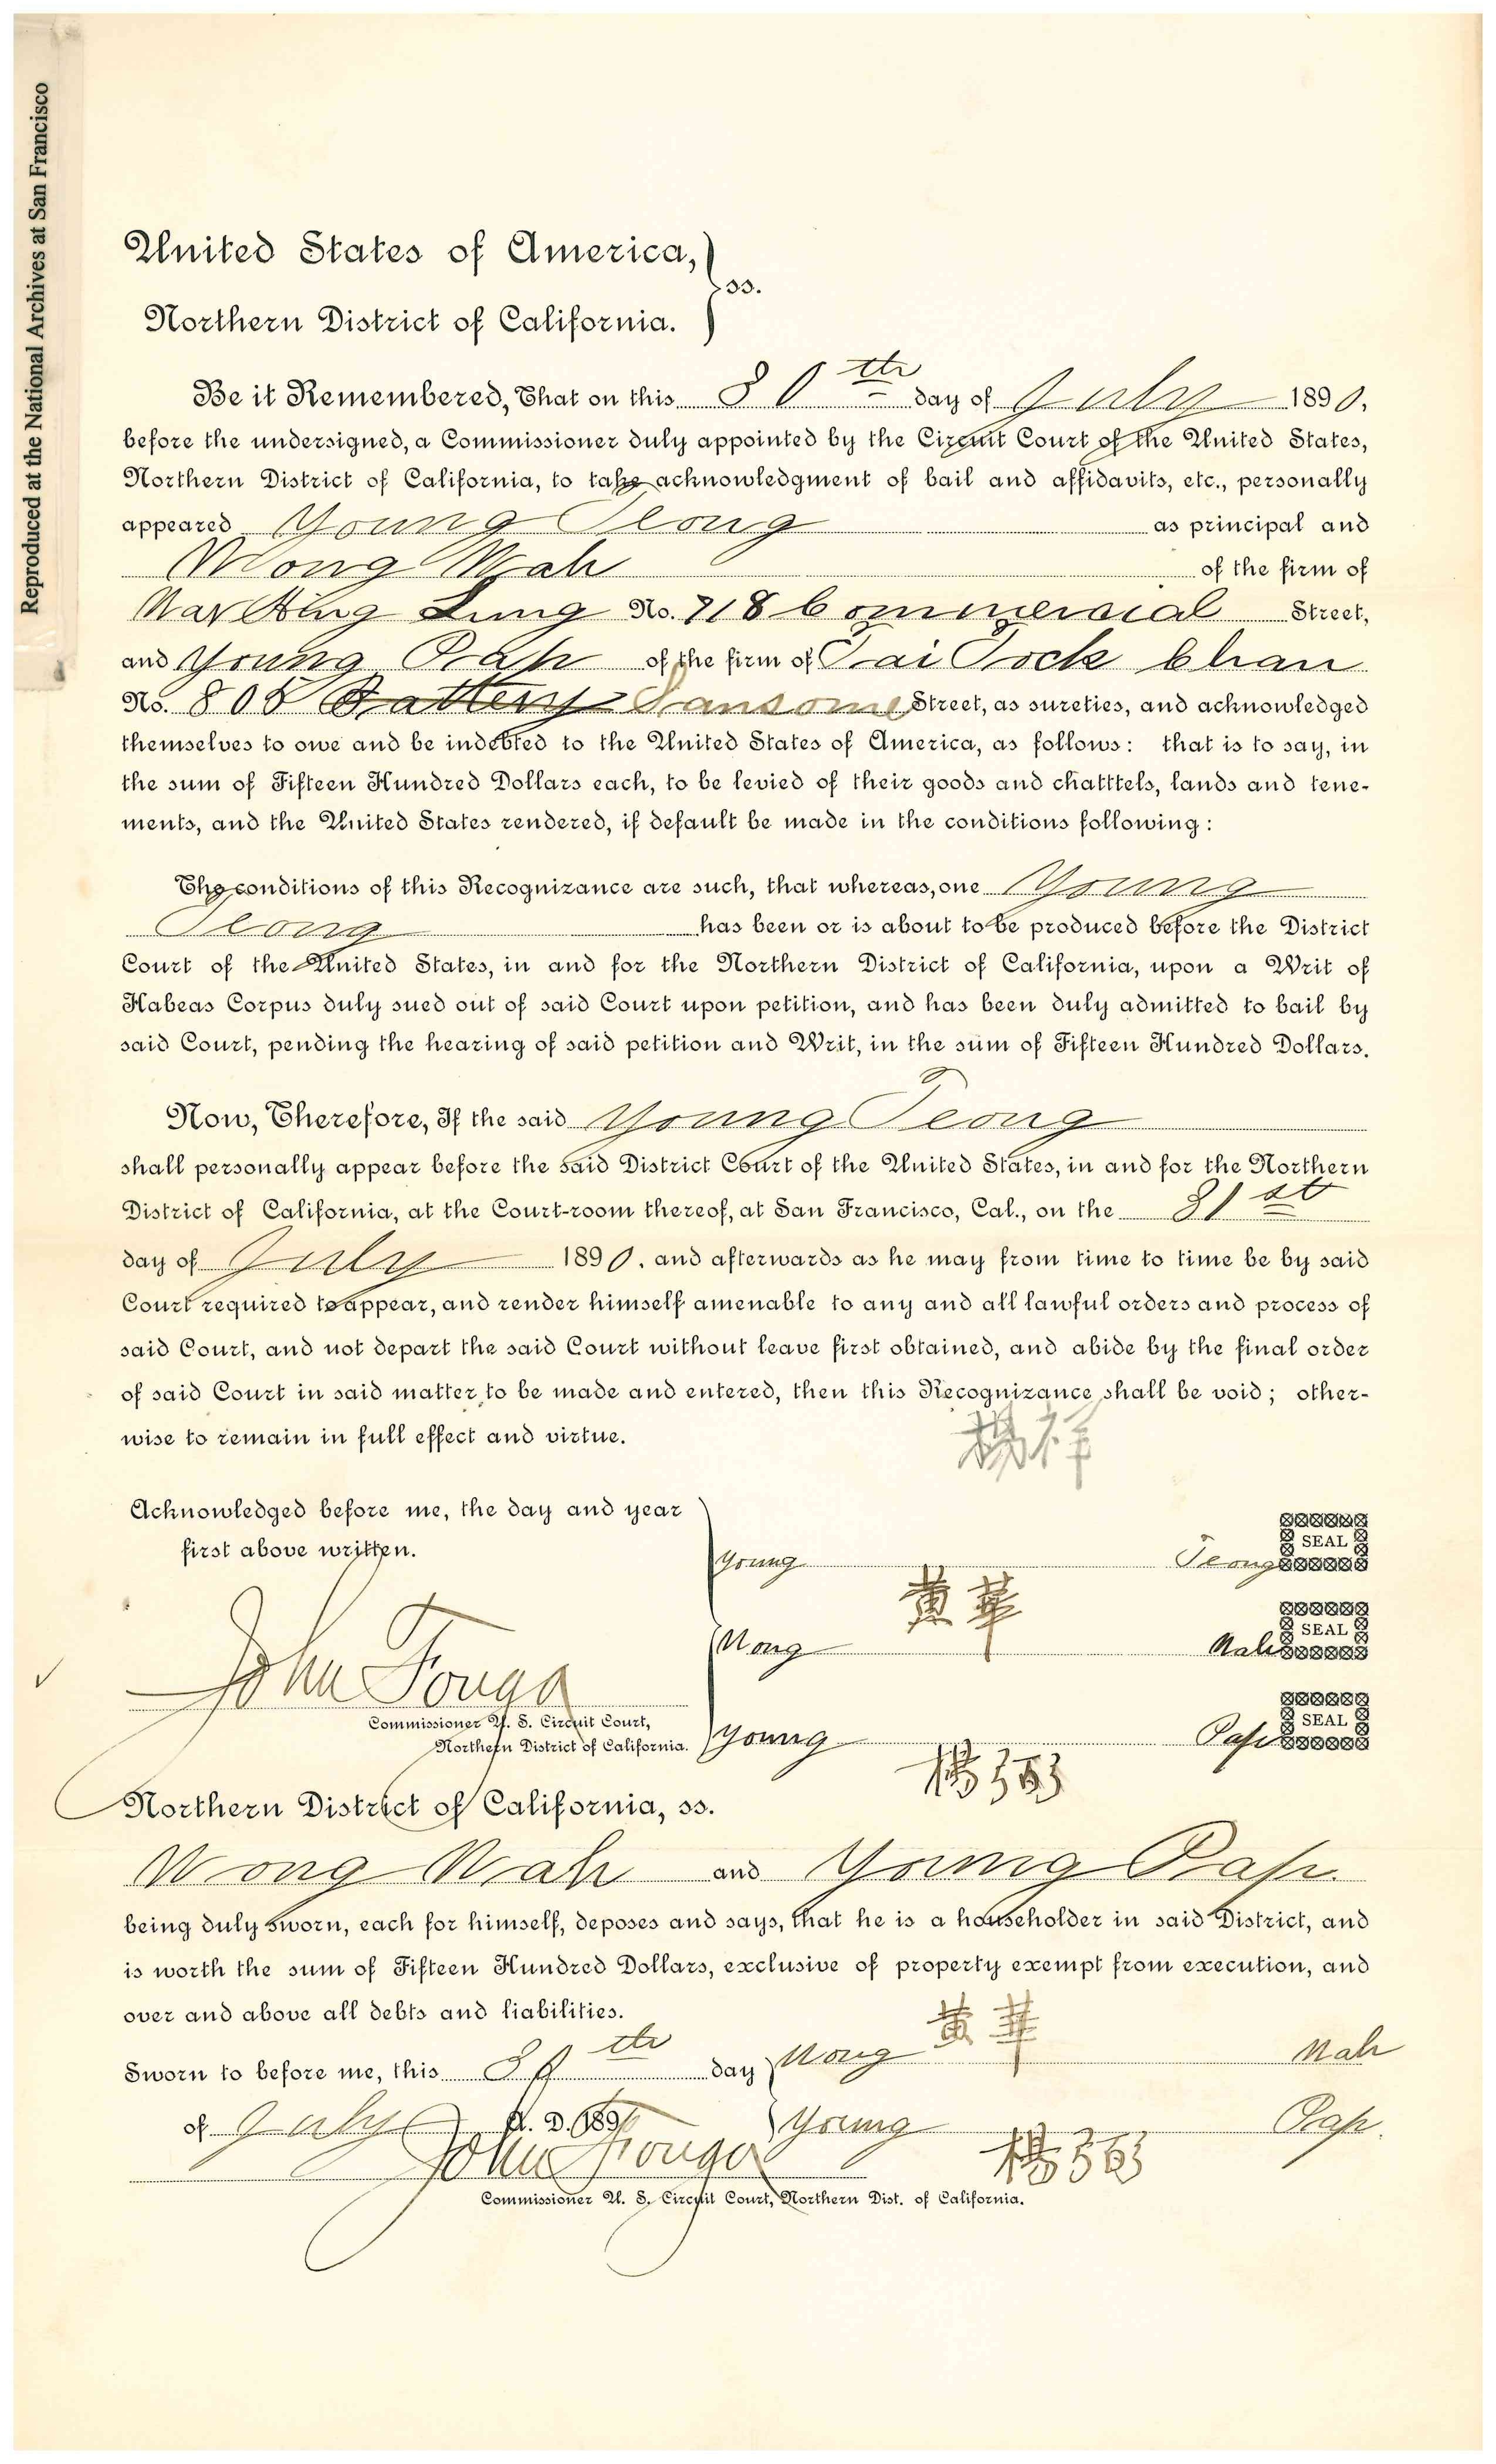 Reproduced at the National Archives at San Francisco
United States of America,
ss.
Northern District of California.
Be it Remembered, That on this 30th day of July 1890,
before the undersigned, a Commissioner duly appointed by the Circuit Court of the United States,
Northern District of California, to take acknowledgment of bail and affidavits, etc., personally
appeared Young Teong as principal and
Wong Wah of the firm of
Lung No. 718 Commercial Street,
and Young Pap of the firm of Tai Tock Chan
No. 805 Battery Sansome Street, as sureties, and acknowledged
themselves to owe and be indebted to the United States of America, as follows: that is to say, in
the sum of Fifteen Hundred Dollars each, to be levied of their goods and chatttels, lands and tene-
ments, and the United States rendered, if default be made in the conditions following:
The conditions of this Recognizance are such, that whereas, one Young
Teong has been or is about to be produced before the District
Court of the United States, in and for the Northern District of California, upon a Writ of
Habeas Corpus duly sued out of said Court upon petition, and has been duly admitted to bail by
said Court, pending the hearing of said petition and Writ, in the sum of Fifteen Hundred Dollars.
Now, Therefore, If the said Young Teong
shall personally appear before the said District Court of the United States, in and for the Northern
District of California, at the Court-room thereof, at San Francisco, Cal., on the 31st
day of July 1890. and afterwards as he may from time to time be by said
Court required to appear, and render himself amenable to any and all lawful orders and process of
said Court, and not depart the said Court without leave first obtained, and abide by the final order
of said Court in said matter to be made and entered, then this Recognizance shall be void; other-
wise to remain in full effect and virtue.
楊祥
Acknowledged before me, the day and year
first above written.
Young Teong SEAL
黄華
Wong Wah SEAL
John Fouga
Commissioner U. S. Circuit Court,
Northern District of California.
Young Pap SEAL
楊
Northern District of California, ss.
Wong Wah and Young Pap.
being duly sworn, each for himself, deposes and says, that he is a householder in said District, and
is worth the sum of Fifteen Hundred Dollars, exclusive of property exempt from execution, and
over and above all debts and liabilities.
Sworn to before me, this 30th day
Wong 黄華 Wah
of July A. D. 1890
Young 楊 Pap.
John Fouga
Commissioner U. S. Circuit Court, Northern Dist. of California.